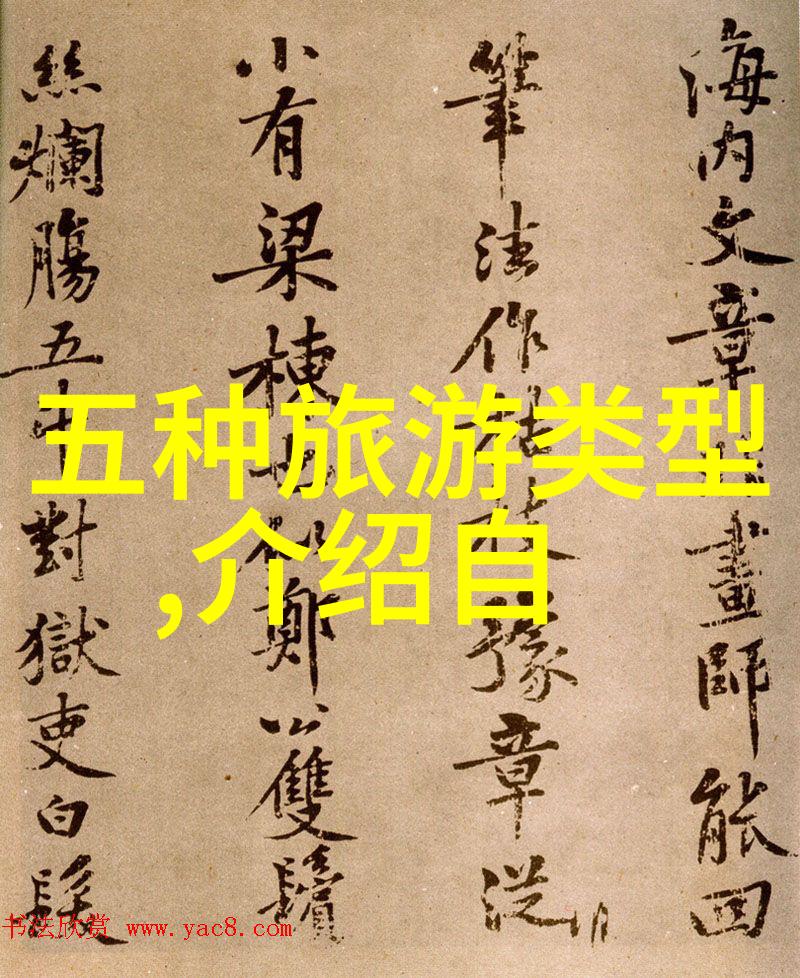 海内文章畫師能回
筆法作枯枝豫章從
小有梁棟也鄭公雙鬢
絲爛腸五對獄吏白髮
五种旅游类型
,介绍自
书法欣赏 www.yac8.com